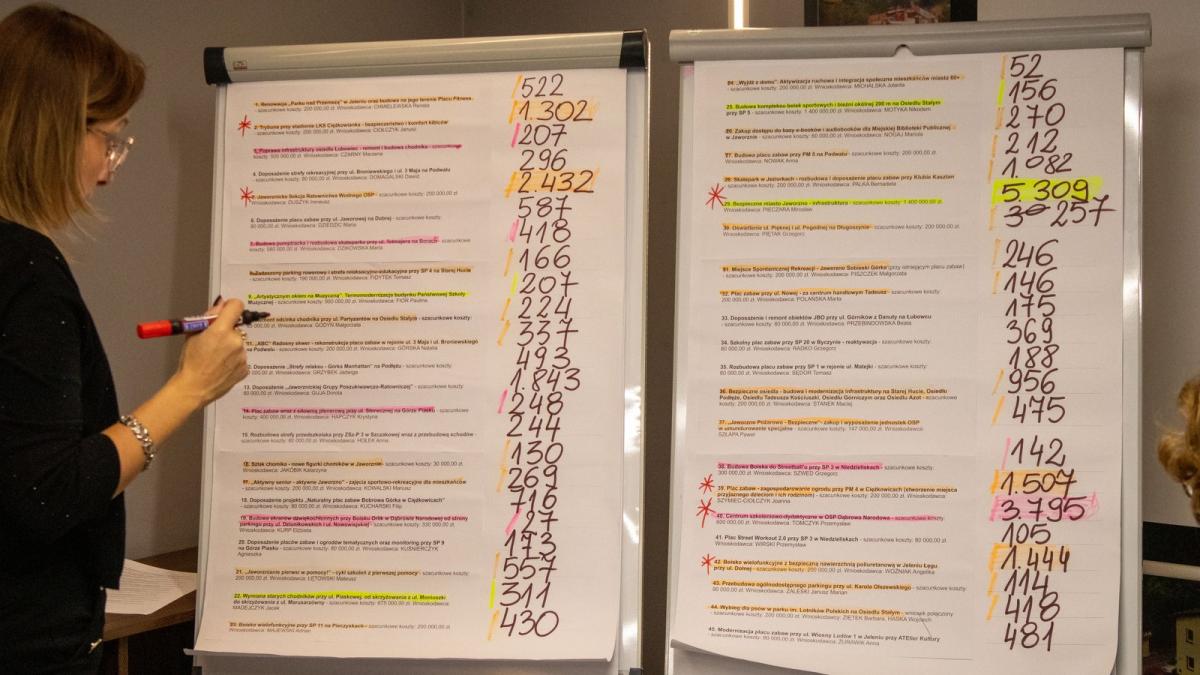 1. Renowacja „Parku nad Przemszą" w Jeleniu oraz budowa na jego terenie Placu Fitness.
- szacunkowe koszty: 200 000,00 zł. Wnioskodawca: CHMIELEWSKA Renata
522
2. Trybuna przy stadionie LKS Ciężkowianka - bezpieczeństwo i komfort kibiców
- szacunkowe koszty: 200 000,00 zł. Wnioskodawca: CIOŁCZYK Janusz
1.302
3. Poprawa infrastruktury osiedla Łubowiec - remont i budowa chodnika - szacunkowe
koszty: 500 000,00 zł. Wnioskodawca: CZARNY Marzena
207
4. Doposażenie strefy rekreacyjnej przy ul. Broniewskiego i ul. 3 Maja na Podwalu
- szacunkowe koszty: 80 000,00 zł. Wnioskodawca: DOMAGALSKI Dawid
296
5. Jaworznicka Sekcja Ratownictwa Wodnego OSP - szacunkowe koszty: 200 000,00 zł.
Wnioskodawca: DUSZYK Ireneusz
2.432
6. Doposażenie placu zabaw przy ul. Jaworowej na Dobrej - szacunkowe koszty:
80 000,00 zł. Wnioskodawca: DZIEDZIC Maria
587
7. Budowa pumptracka i rozbudowa skateparku przy ul. - szacunkowe
Wnioskodawca: DZIKOWSKA Maria
418
parking rowerowy i strefa relaksacyjno-edukacyjna przy SP 4 na Starej Hucie
- szacunkowe koszty: 190 000,00 zł. Wnioskodawca: FIDYTEK Tomasz
166
9. „Artystycznym okiem na Muzyczną". Termomodernizacja budynku Państwowej Szkoły
Muzycznej - szacunkowe koszty: 900 000,00 zł. Wnioskodawca: FIOR Paulina
207
odcinka chodnika przy ul. Partyzantów na Osiedlu Stałym - szacunkowe koszty:
Wnioskodawca: GODYŃ Małgorzata
224
11. „ABC" Radosny skwer - rekonstrukcja placu zabaw w rejonie ul. 3 Maja i ul. Broniewskiego
na Podwalu - szacunkowe koszty: 200 000,00 zł. Wnioskodawca: GÓRSKA Natalia
337
Doposażenie „Strefy relaksu - Górka Manhattan" na Podłężu - szacunkowe koszty:
80 000,00 zł. Wnioskodawca: GRZYBEK Jadwiga
493
13. Doposażenie „Jaworznickiej Grupy Poszukiwawczo-Ratowniczej" - szacunkowe koszty:
80 000,00 zł. Wnioskodawca: GUJA Dorota
1.843
14. Plac zabaw wraz z siłownią plenerową przy ul. Słonecznej na Górze Piasku - szacunkowe
koszty: 400 000,00 zł. Wnioskodawca: HAPCZYK Krystyna
248
15. Rozbudowa strefy przedszkolaka przy ZSz-P 3 w Szczakowej wraz z przebudową schodów -
szacunkowe koszty: 80 000,00 zł. Wnioskodawca: HOLEK Anna
244
16. Szlak chomika - nowe figurki chomików w Jaworznie - szacunkowe koszty: 30 000,00 zł.
Wnioskodawca: JAKÓBIK Katarzyna
130
17. „Aktywny senior - aktywne Jaworzno" - zajęcia sportowo-rekreacyjne dla mieszkańców
- szacunkowe koszty: 200 000,00 zł. Wnioskodawca: KOWALSKI Mariusz
269
18. Doposażenie projektu „Naturalny plac zabaw Dobrowa Górka w Ciężkowicach"
- szacunkowe koszty: 80 000,00 zł. Wnioskodawca: KUCHARSKI Filip
716
19. Budowa ekranów dźwiękochłonnych przy Boisku Orlik w Dąbrowie Narodowej od strony
parkingu przy ul. Dziunikowskich i ul. Nowowiejskiej - szacunkowe koszty: 330 000,00 zł.
Wnioskodawca: KURP Elżbieta
127
20. Doposażenie placów zabaw i ogrodów tematycznych oraz monitoring przy SP 9
na Górze Piasku - szacunkowe koszty: 80 000,00 zł. Wnioskodawca: KUŚNIERCZYK
Agnieszka
173
21. „Jaworznianie pierwsi w pomocy!" - cykl szkoleń z pierwszej pomocy - szacunkowe koszty:
200 000,00 zł. Wnioskodawca: LETOWSKI Mateusz
557
22. Wymiana starych chodników przy ul. Piaskowej, od skrzyżowania z ul. Moniuszki
do skrzyżowania z ul. Marusarzówny - szacunkowe koszty: 675 000,00 zł. Wnioskodawca:
MADEJCZYK Jacek
311
23. Boisko wielofunkcyjne przy SP 11 na Pieczyskach - szacunkowe koszty: 200 000,00 zł.
Wnioskodawca: MAJEWSKI Adrian
430
24. „Wyjdź z domu". Aktywizacja ruchowa i integracja społeczna mieszkańców miasta 60+
- szacunkowe koszty: 200 000,00 zł. Wnioskodawca: MICHALSKA Jolanta
52
25. Budowa kompleksu boisk sportowych i bieżni okólnej 200 m na Osiedlu Stałym
przy SP 5 - szacunkowe koszty: 1 400 000,00 zł. Wnioskodawca: MOTYKA Nikodem
156
26. Zakup dostępu do bazy e-booków i audiobooków dla Miejskiej Biblioteki Publicznej
w Jaworznie - szacunkowe koszty: 60 000,00 zł. Wnioskodawca: NOGAJ Mariola
270
27. Budowa placu zabaw przy PM 5 na Podwalu - szacunkowe koszty: 200 000,00 zł.
Wnioskodawca: NOWAK Anna
212
28. Skatepark w Jeziorkach - rozbudowa i doposażenie placu zabaw przy Klubie Kasztan
- szacunkowe koszty: 200 000,00 zł. Wnioskodawca: PAŁKA Bernadeta
1.082
29. Bezpieczne miasto Jaworzno - infrastruktura - szacunkowe koszty: 1 400 000,00 zł.
Wnioskodawca: PIECZARA Mirosław
5.309
30. Oświetlenie ul. Pięknej i ul. Pogodnej na Długoszynie - szacunkowe koszty: 200 000,00 zł.
Wnioskodawca: PIĘTAK Grzegorz
257
31. Miejsce Spontanicznej Rekreacji - Jaworzno Sobieski Górka (przy istniejącym placu zabaw)
- szacunkowe koszty: 200 000,00 zł. Wnioskodawca: PISZCZEK Małgorzata
246
32. Plac zabaw przy ul. Nowej - za centrum handlowym Tadeusz - szacunkowe koszty:
200 000,00 zł. Wnioskodawca: POLAŃSKA Marta
146
33. Doposażenie i remont obiektów JBO przy ul. Górników z Danuty na Łubowcu
- szacunkowe koszty: 80 000,00 zł. Wnioskodawca: PRZEBINDOWSKA Beata
175
34. Szkolny plac zabaw przy SP 20 w Byczynie - reaktywacja - szacunkowe koszty:
80 000,00 zł. Wnioskodawca: RADKO Grzegorz
369
35. Doposażenie placu zabaw przy SP 1 w rejonie ul. Matejki - szacunkowe koszty:
80 000,00 zł. Wnioskodawca: SĘDOR Tomasz
188
36. Bezpieczne osiedla - budowa i modernizacja infrastruktury na Starej Hucie, Osiedlu
Podłęże, Osiedlu Tadeusza Kościuszki, Osiedlu Górniczym oraz Osiedlu Azot - szacunkowe
koszty: 200 000,00 zł. Wnioskodawca: STANEK Maciej
956
37. „Jaworzno Pożarowo - Bezpieczne" - zakup i wyposażenie jednostek OSP
w umundurowanie specjalne - szacunkowe koszty: 147 000,00 zł. Wnioskodawca:
SZLAPA Paweł
475
38. Budowa Boiska do Streetball'u przy SP 3 w Niedzieliskach - szacunkowe koszty:
300 000,00 zł. Wnioskodawca: SZWED Grzegorz
142
39. Plac zabaw - zagospodarowanie ogrodu przy PM 4 w Ciężkowicach (stworzenie miejsca
przyjaznego dzieciom i ich rodzinom) - szacunkowe koszty: 200 000,00 zł. Wnioskodawca:
SZYMIEC-CIOŁCZYK Joanna
1.507
40. Centrum szkoleniowo-dydaktyczne w OSP Dąbrowa Narodowa - szacunkowe koszty:
600 000,00 zł. Wnioskodawca: TOMCZYK Przemysław
3.795
41. Plac Street Workout 2.0 przy SP 3 w Niedzieliskach - szacunkowe koszty: 80 000,00 zł.
Wnioskodawca: WIRSKI Przemysław
105
42. Boisko wielofunkcyjne z bezpieczną nawierzchnią poliuretanową w Jeleniu Łęgu
przy ul. Dolnej - szacunkowe koszty: 200 000,00 zł. Wnioskodawca: WOŹNIAK Angelika
1.444
43. Przebudowa ogólnodostępnego parkingu przy ul. Karola Olszewskiego - szacunkowe
koszty: 200 000,00 zł. Wnioskodawca: ZALESKI Janusz Marian
114
44. Wybieg dla psów w parku im. Lotników Polskich na Osiedlu Stałym - wniosek połączony
- szacunkowe koszty: 200 000,00 zł. Wnioskodawca: ZIĘTEK Barbara, HASKA Wojciech
418
45. Modernizacja placu zabaw przy ul. Wiosny Ludów 1 w Jeleniu przy ATElier Kultury
- szacunkowe koszty: 80 000,00 zł. Wnioskodawca: ŻURAWIK Anna
481